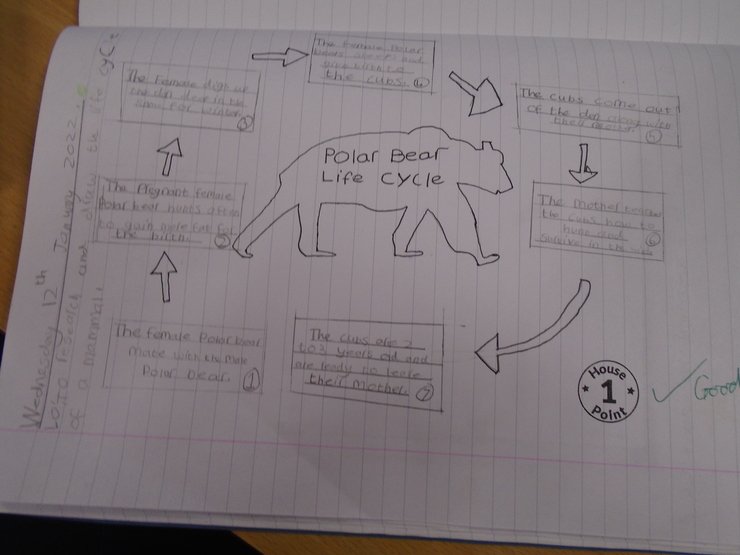 Wednesday 12th January 2022
LO: To research and draw the life cycle
of a mammal.
Polar Bear
Life Cycle
The female Polar bear
mate with the male
Polar bear. 1
The Pregnant female
Polar bear hunts often
to gain more fat for
the birth. 2
The Female digs up
the den deep in the
snow for winter. 3
The female Polar
bears and
give birth to
the cubs.
The cubs come out
of the den along with
their mother. 5
The mother
the cubs how to
hunt and
survive in the 6
The cubs are 2
to 3 years old and
are ready to leave
their mother. 7
House
1
Point
Good